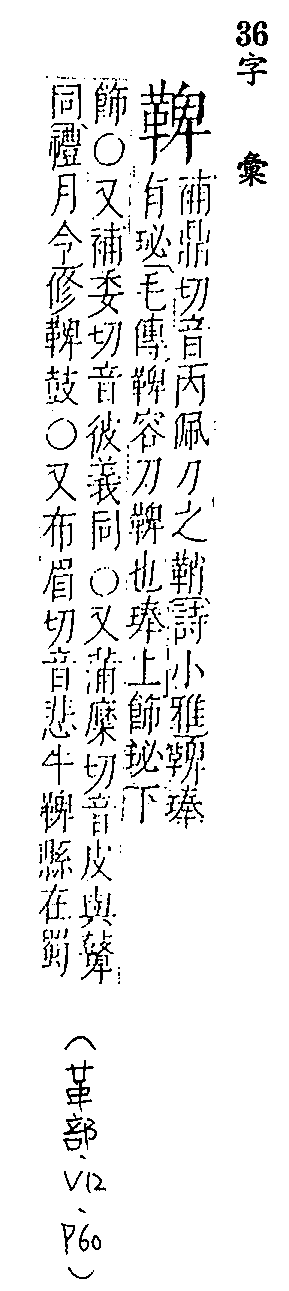 36字彙
鞞
補鼎切音丙佩刀之鞘詩小雅鞞琫
有珌毛傳鞞容刀鞞也琫上飾珌下
飾○又補委切音彼義同○又蒲糜切音皮與鼙
同禮月令修鞞鼓○又布眉切音悲牛鞞縣在蜀
(革部、V12、P60)